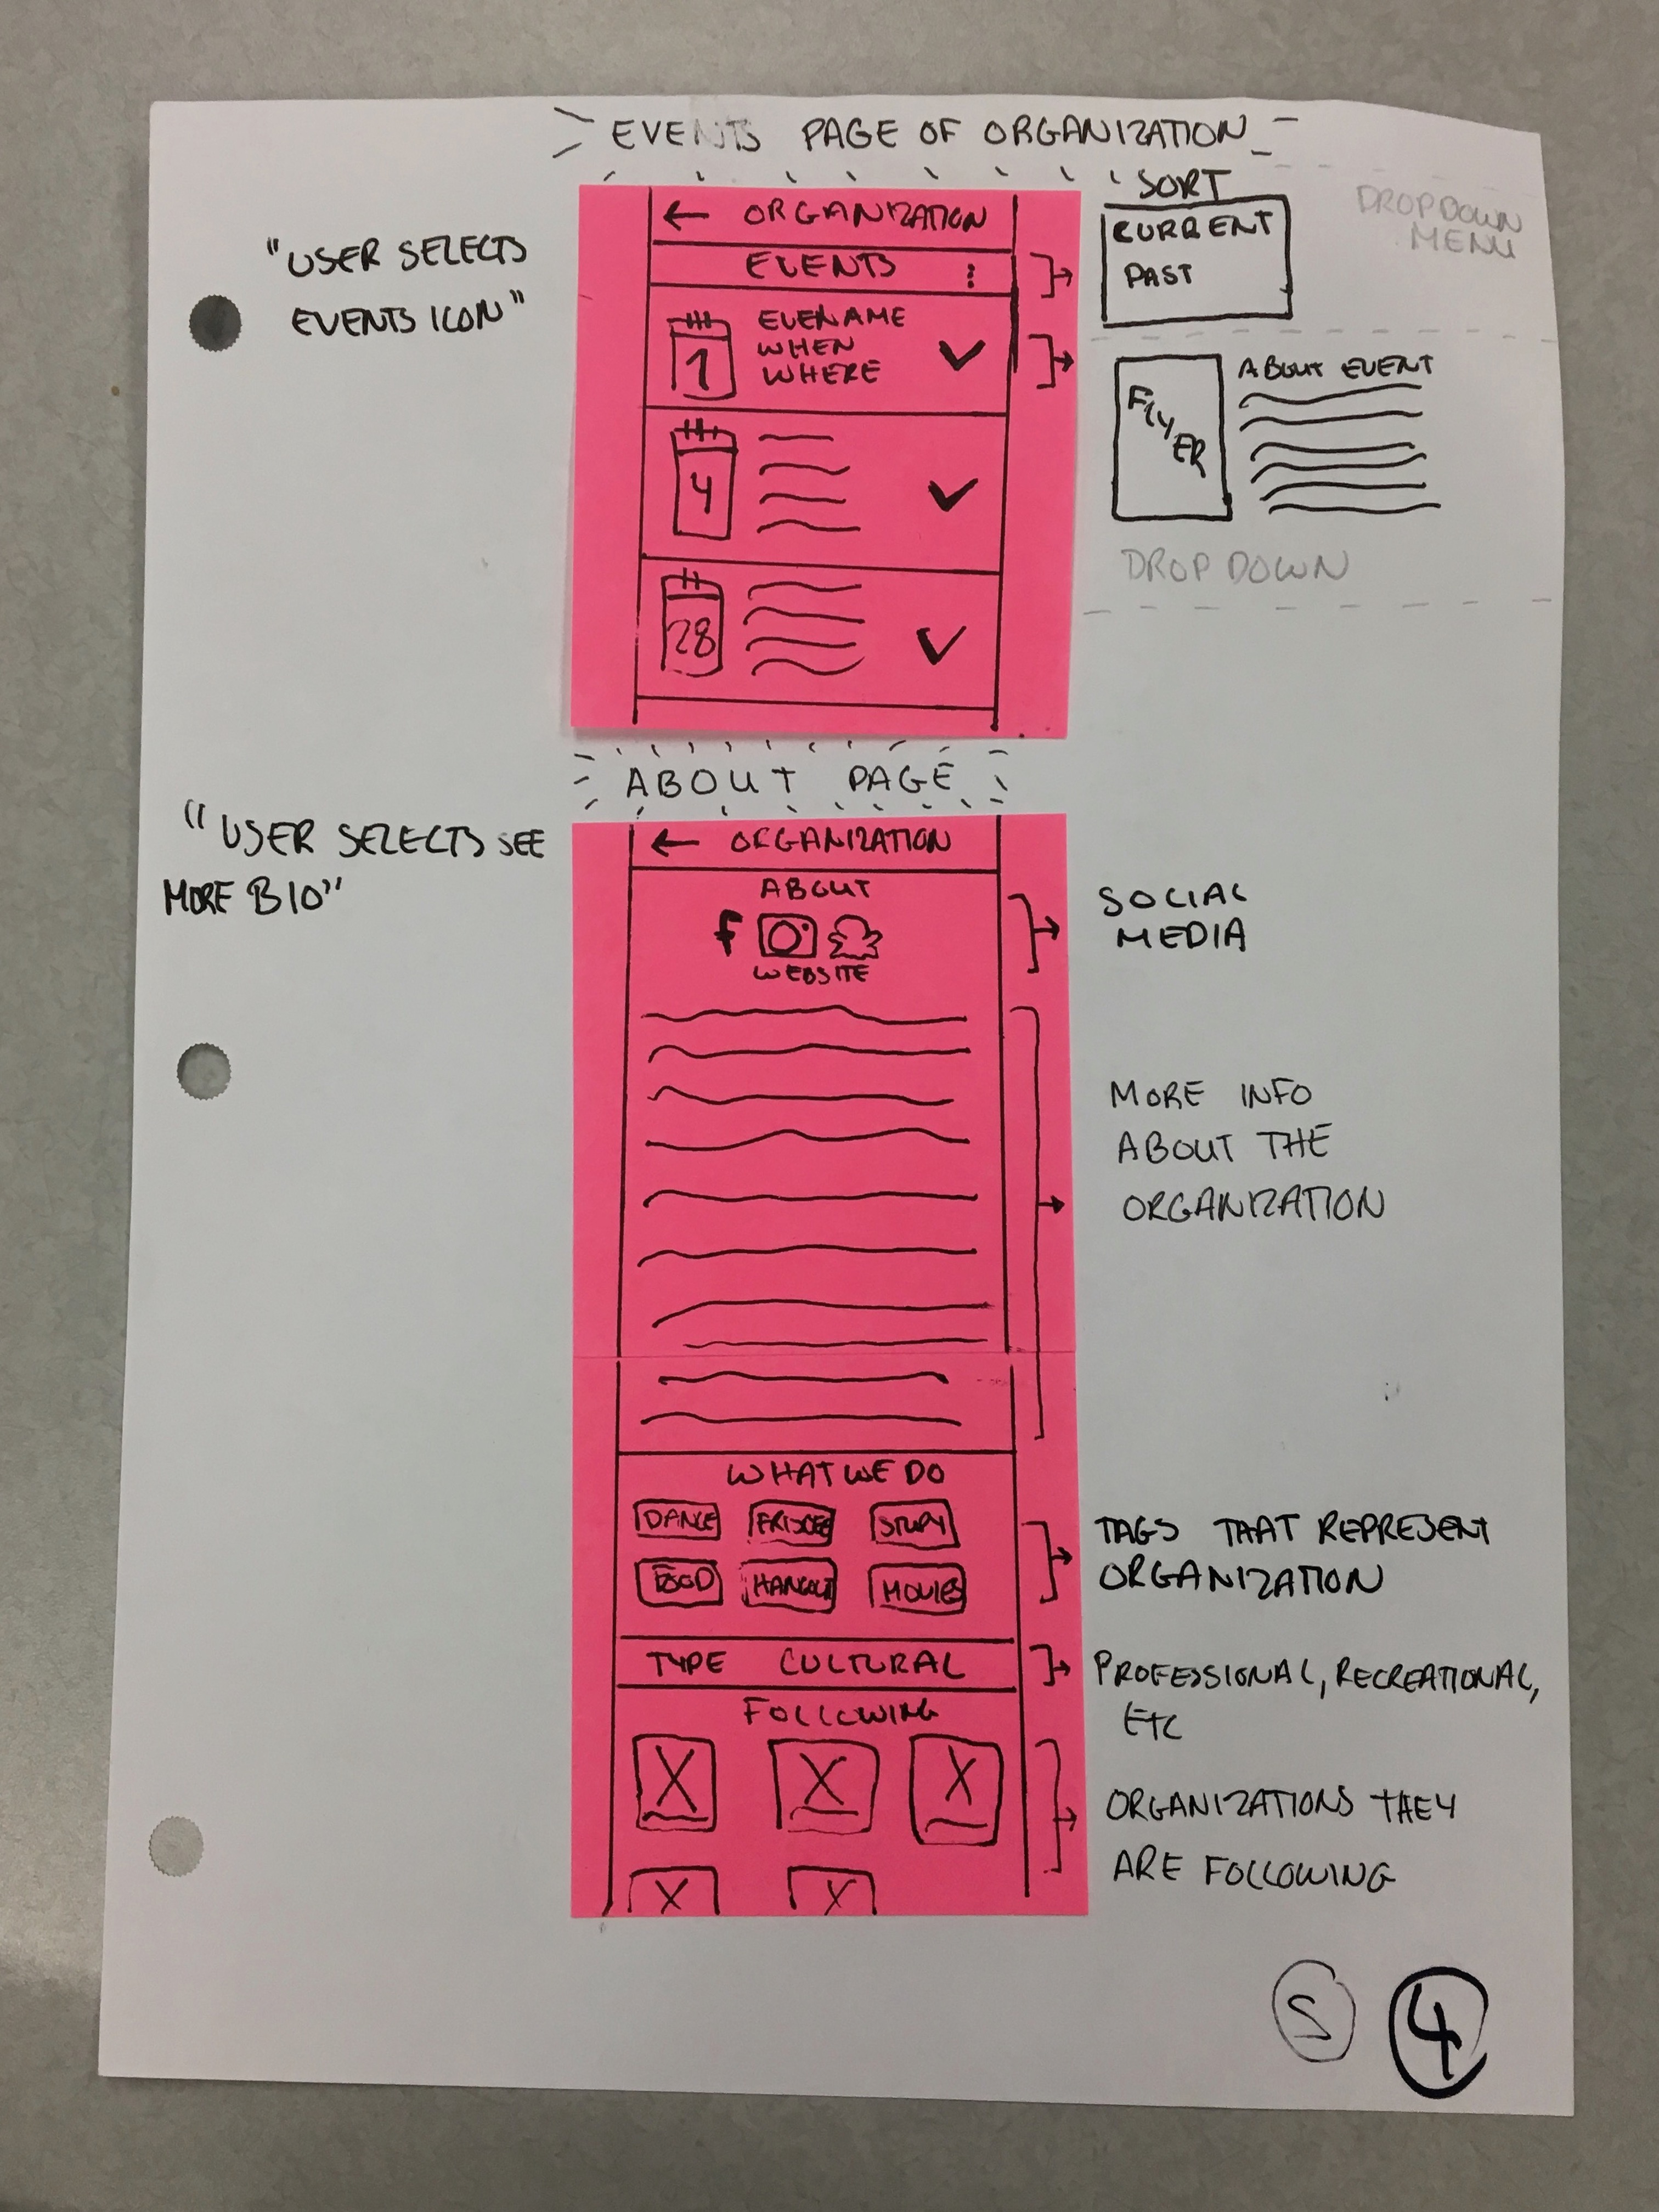 EVENTS PAGE OF ORGANIZATION
"USER SELECTS
EVENTS ICON"
← ORGANIZATION
EVENTS
SORT
CURRENT
PAST
DROPDOWN
MENU
1
EVENAME
WHEN
WHERE
4
28
FLYER
ABOUT EVENT
DROP DOWN
ABOUT PAGE
"USER SELECTS SEE
MORE BIO"
← ORGANIZATION
ABOUT
f
WEBSITE
SOCIAL
MEDIA
MORE INFO
ABOUT THE
ORGANIZATION
WHAT WE DO
DANCE FRISBEE STUDY
FOOD HANGOUT MOVIES
TAGS THAT REPRESENT
ORGANIZATION
TYPE CULTURAL
PROFESSIONAL, RECREATIONAL,
ETC
FOLLOWING
ORGANIZATIONS THEY
ARE FOLLOWING
S 4